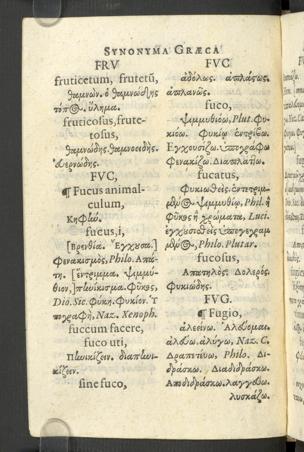 SYNONYMA GRÆCA
FRV
fruticetum, frutetū,
θαμνών. ὁ θαμνώδης
τόπος. ὕλημα.
fruticosus, frute-
tosus,
θαμνώδης. θαμνοειδής.
FVC,
¶ Fucus animal-
culum,
Κηφήν.
fucus, i,
[Βρενθία. Ἔγχυσα.]
φενακισμὸς, Philo. Ἀπά-
τη. [ἔντριμμα. ψιμμύ-
θιον,] φῦκος,
Dio. Sic. φύκη. φυκίον. Ὑ
πογραφή, Naz. Xenoph.
fuccum facere,
fuco uti,
sine fuco,
FVC
ἀδόλως. ἀπλάςως.
ἀπλανῶς.
fuco,
ψιμμυθιόω, Plut. Φυ-
κιόω. Φυκίῳ ἐντρίβω.
Ἐγχουσίζω. ὑπογράφω
Φενακίζω. Διαπλάττω.
fucatus,
Φυκιωθεὶς. ἐντετριμ-
μένος ψιμμυθίῳ, Phil. ἢ
φῦκος ἢ χρώματα, Luci.
ἐγχυσιωθεὶς ὑπογεγραμ
μένος, Philo. Plutar.
fucosus,
Ἀπατηλός. Δολερός.
Φυκιώδης.
FVG.
¶ Fugio,
ἀλεείνω. Ἀλέομαι.
ἀλύω. ἀλύγω, Naz. C.
Δραπετεύω, Philo. Δι-
δράσκω. Διαδιδράσκω.
Ἀποδιδράσκω. λαγγέω.
λυσκάζω.